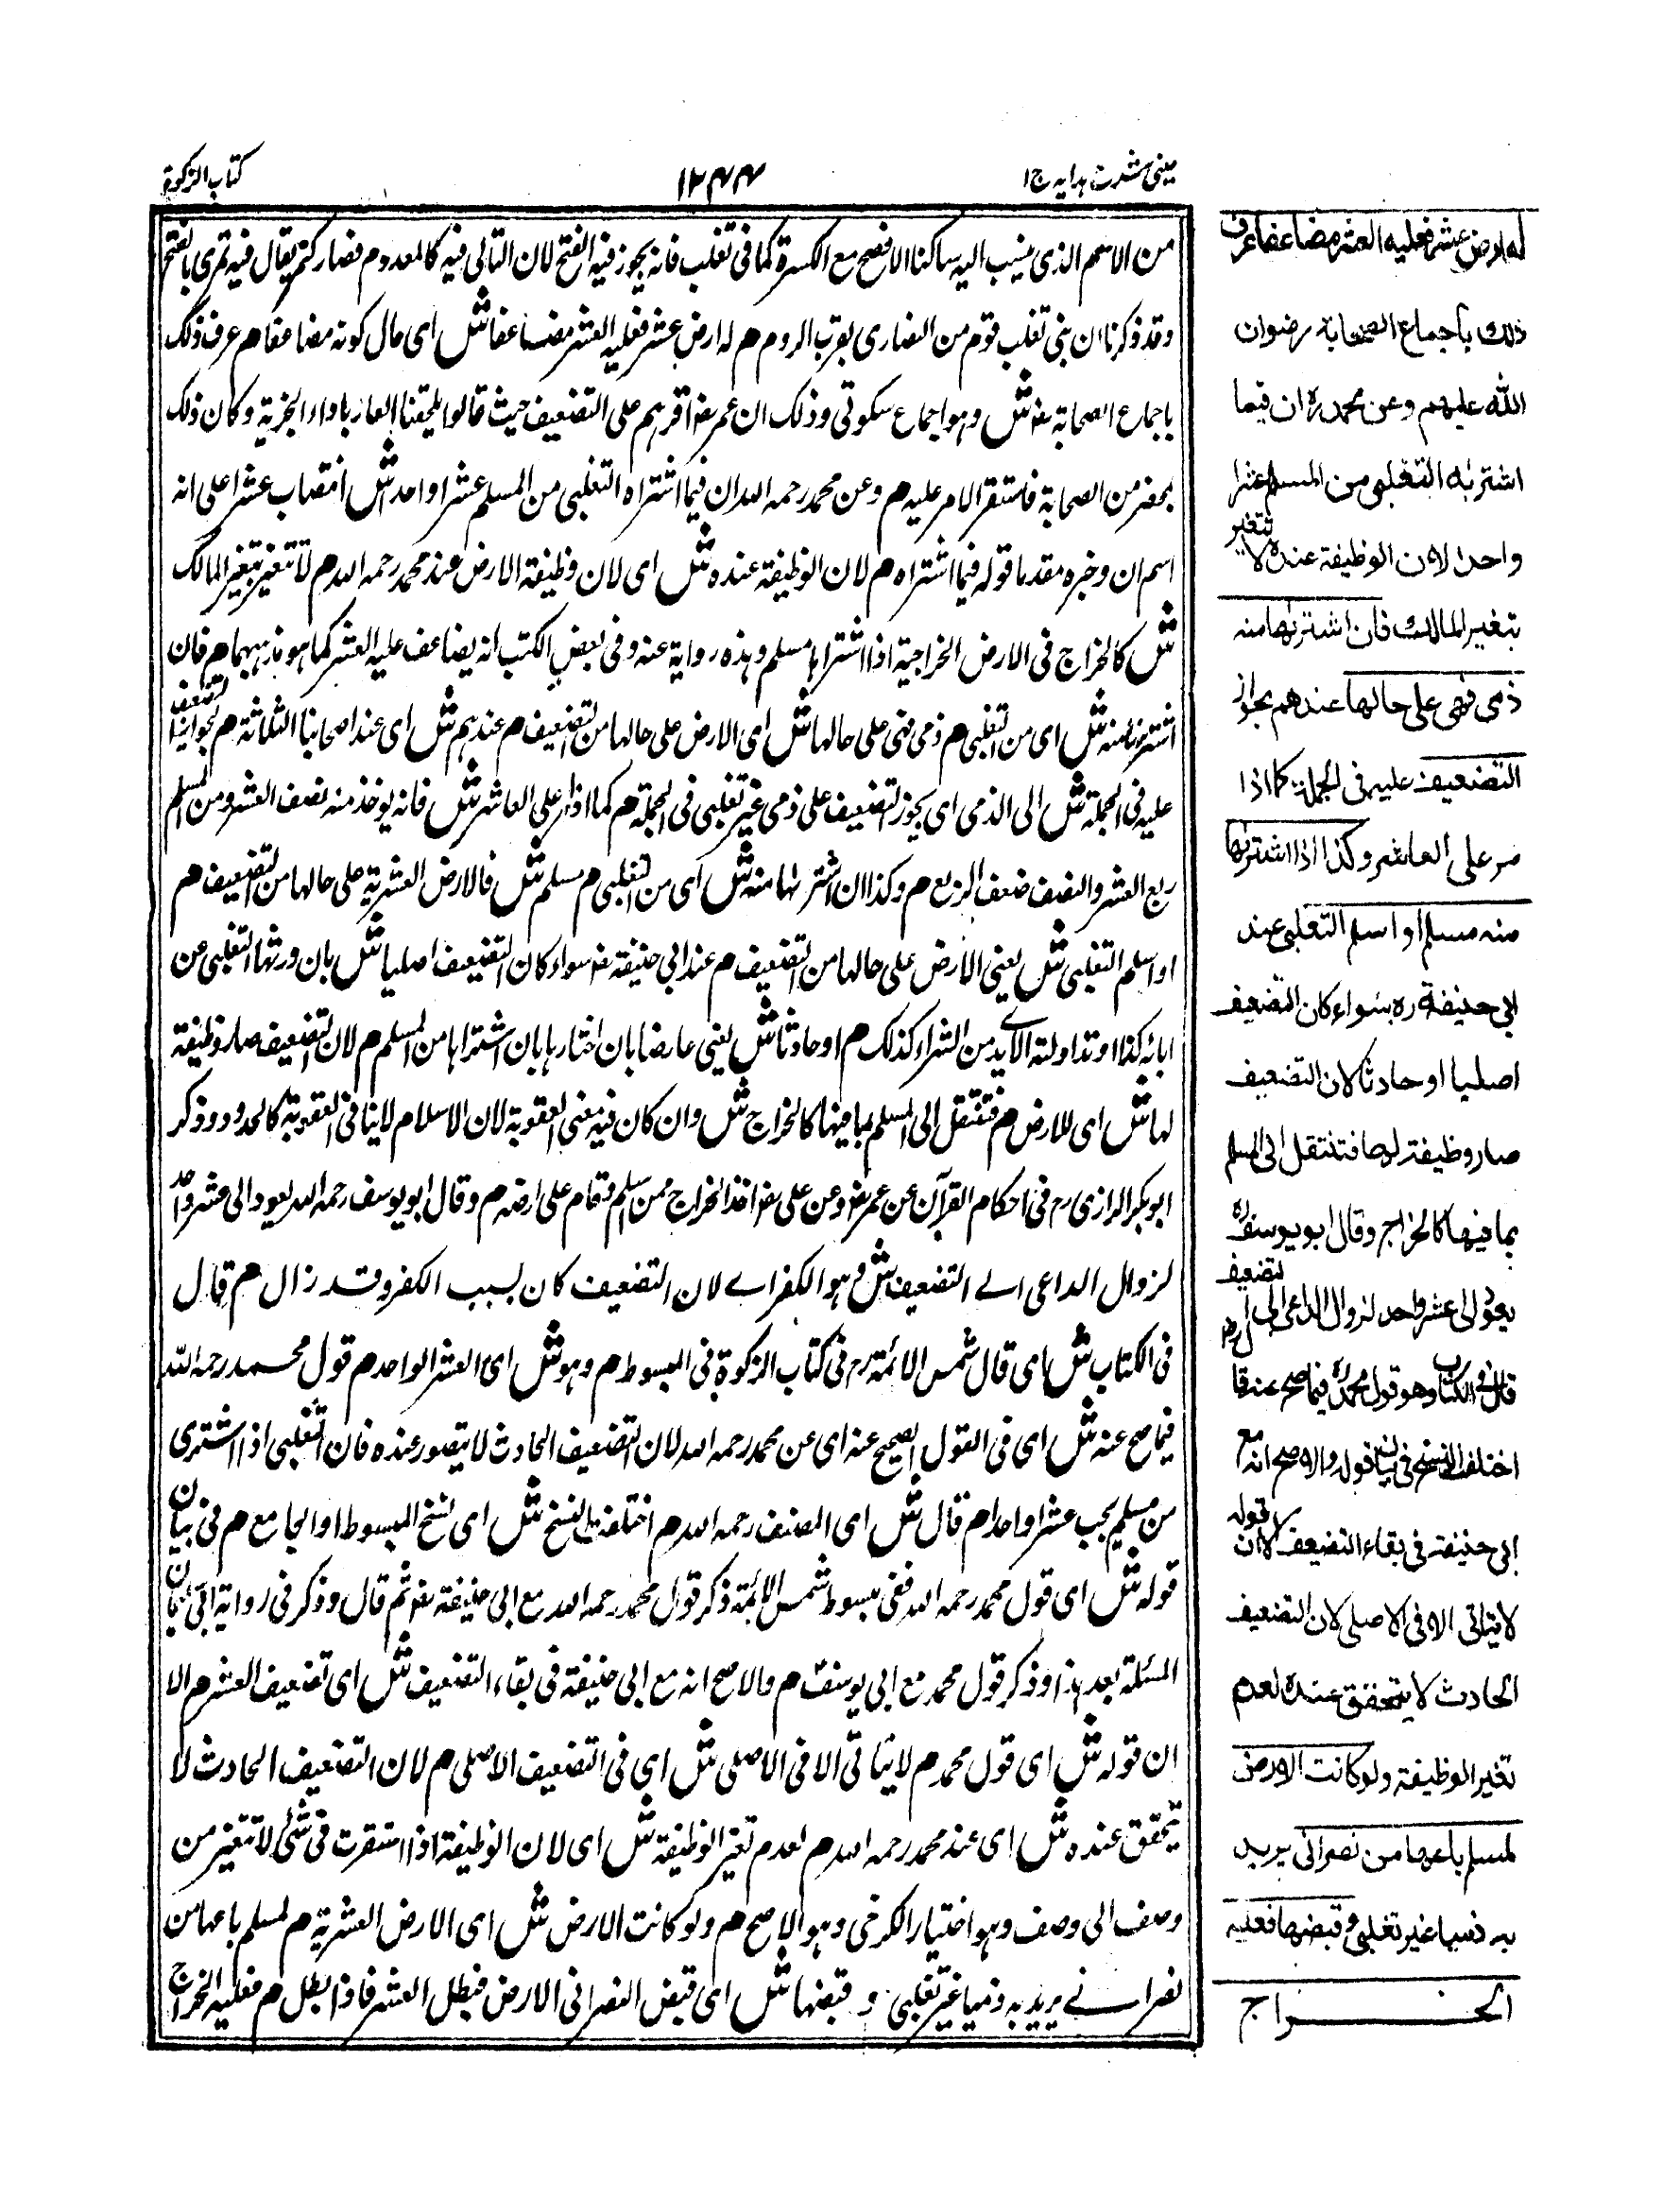 عینی شرح ہدایہ ج ۱
۱۲۴۴
کتاب الزکوة
من الاسم الذی ینسب الیہ ساکنا الافصح مع الکسرة کما فی تغلب فانہ یجوز فیہ الفتح لان التالی فیہ کالمعدوم فصار کنمر یقال فیہ نمری بالفتح
وقد ذکرنا ان بنی تغلب قوم من النصاری بقرب الروم م لہ ارض عشر فعلیہ العشر مضاعفا ش ای حال کونہ مضاعفا م عرف ذلک
باجماع الصحابة رض ش وہو اجماع سکوتی وذلک ان عمر رض اقرہم علی التضعیف حیث قالوا یلحقنا العار باداء الجزیة وکان ذلک
بمحضر من الصحابة فاستقر الامر علیہ م وعن محمد رحمہ اللہ ان فیما اشتراہ التغلبی من المسلم عشرا واحدا ش انتصاب عشرا علی انہ
اسم ان وخبرہ مقدما قولہ فیما اشتراہ م لان الوظیفة عندہ ش ای لان وظیفة الارض عند محمد رحمہ اللہ م لا تتغیر بتغیر المالک
ش کالخراج فی الارض الخراجیة اذا اشتراہا مسلم وہذہ روایة عنہ وفی بعض الکتب انہ یضاعف علیہ العشر کما ہو مذہبہما م فان
اشتراہا منہ ش ای من التغلبی م ذمی فہی علی حالہا ش ای الارض علی حالہا من التضعیف م عندہم ش ای عند اصحابنا الثلاثة م لجواز التضعیف
علیہ فی الجملة ش الی الذمی ای یجوز التضعیف علی ذمی غیر تغلبی فی الجملة م کما اذا مر علی العاشر ش فانہ یوخذ منہ نصف العشر ومن المسلم
ربع العشر والنصف ضعف الربع م وکذا ان اشتراہا منہ ش ای من التغلبی م مسلم ش فالارض العشریة علی حالہا من التضعیف م
او اسلم التغلبی ش یعنی الارض علی حالہا من التضعیف م عند ابی حنیفة رض سواء کان التضعیف اصلیا ش بان ورثہا التغلبی عن
ابائہ کذا او تداولتہ الایدے من الشراء کذلک م او حادثا ش یعنی عارضا بان اختارہا بان اشتراہا من المسلم م لان التضعیف صار وظیفة
لہا ش ای للارض م فتنتقل الی المسلم بما فیہا کالخراج ش وان کان فیہ معنی العقوبة لان الاسلام لا ینافی العقوبة کالحدود وذکر
ابو بکر الرازی رح فی احکام القرآن عن عمر رض وعن علی رض اخذ الخراج ممن اسلم وقام علی ارضہ م وقال ابو یوسف رحمہ اللہ یعود الی عشر واحد
لزوال الداعی الے التضعیف ش وہو الکفر اے لان التضعیف کان بسبب الکفر وقد زال م قال
فی الکتاب ش ای قال شمس الائمة رح فی کتاب الزکوة فی المبسوط م وہو ش ای العشر الواحد م قول محمد رحمہ اللہ
فیما صح عنہ ش ای فی القول الصحیح عنہ ای عن محمد رحمہ اللہ لان التضعیف الحادث لا یتصور عندہ فان التغلبی اذا اشتری
من مسلم یجب عشرا واحدا م قال ش ای المصنف رحمہ اللہ م اختلف النسخ ش ای نسخ المبسوط او الجامع م فی بیان
قولہ ش ای قول محمد رحمہ اللہ ففی مبسوط شمس الائمة ذکر قول محمد رحمہ اللہ مع ابی حنیفة رض ثم قال وذکر فی روایة ابی
المسئلة بعد ہذا وذکر قول محمد مع ابی یوسف م والاصح انہ مع ابی حنیفة فی بقاء التضعیف ش ای تضعیف العشر م الا
ان قولہ ش ای قول محمد م لا یتاتی الا فی الاصلی ش ای فی التضعیف الاصلی م لان التضعیف الحادث لا
یتحقق عندہ ش ای عند محمد رحمہ اللہ م لعدم تغیر الوظیفة ش ای لان الوظیفة اذا استقرت فی شئ لا تتغیر من
وصف الی وصف وہو اختیار الکرخی وہو الاصح م ولو کانت الارض ش ای الارض العشریة م لمسلم باعہا من
نصرانے یرید بہ ذمیا غیر تغلبی وقبضہا ش ای قبض النصرانی الارض فبطل العشر فاذا بطل م فعلیہ الخراج
لہ ارض عشر فعلیہ العشر مضاعفا عرف
ذلك باجماع الصحابة رضوان
الله علیهم وعن محمد رہ ان فیما
اشتراہ التغلبی من المسلم عشرا
واحدا لان الوظیفة عندہ لا تتغیر
بتغیر المالك فان اشتراہا منه
ذمی فهی علی حالها عندهم لجواز
التضعیف علیه فی الجملة کما اذا
مر علی العاشر وکذا اذا اشتراہا
منه مسلم او اسلم التغلبی عند
ابی حنیفة رہ سواء کان التضعیف
اصلیا او حادثا لان التضعیف
صار وظیفة لها فتنتقل الی المسلم
بما فیها کالخراج وقال ابو یوسف رہ
یعود الی عشر واحد لزوال الداعی الی التضعیف
قال فی الکتاب وهو قول محمد رہ فیما صح عنه قال
اختلف النسخ فی بیان قوله والاصح انه مع
ابی حنیفة فی بقاء التضعیف الا ان قوله
لا یتاتی الا فی الاصلی لان التضعیف
الحادث لا یتحقق عندہ لعدم
تغیر الوظیفة ولو کانت الارض
لمسلم باعها من نصرانی یرید
به ذمیا غیر تغلبی وقبضها فعلیه
الخــــراج